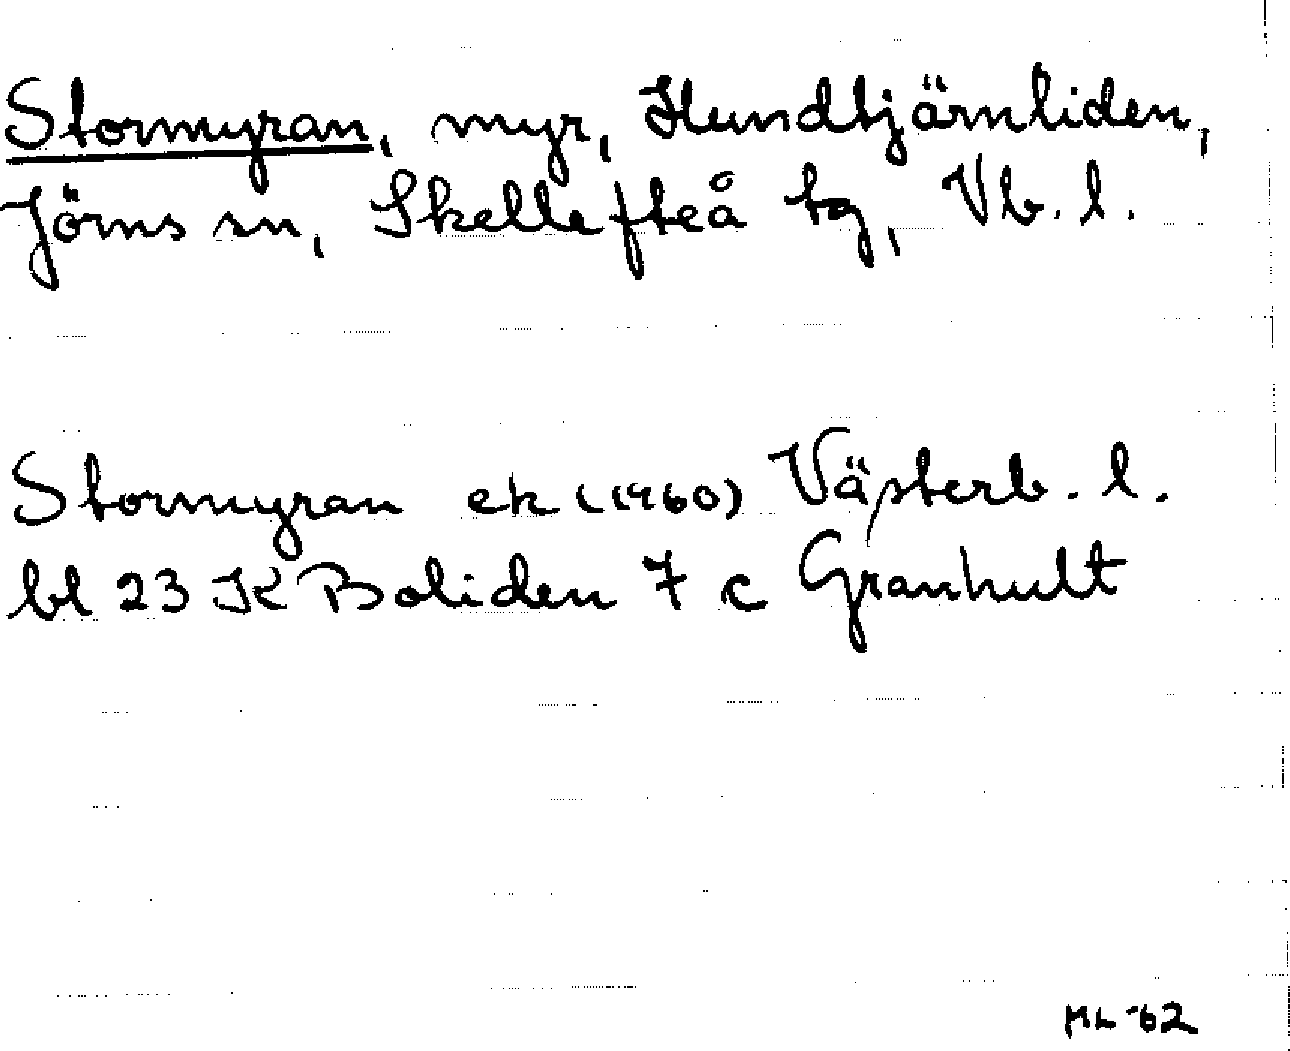 Stormyran, myr, Hundtjärnliden,
Jörns sn, Skellefteå tg, Vb. l.
Stormyran ek (1960) Västerb. l.
bl 23 K Boliden 7 c Granhult
ML -62